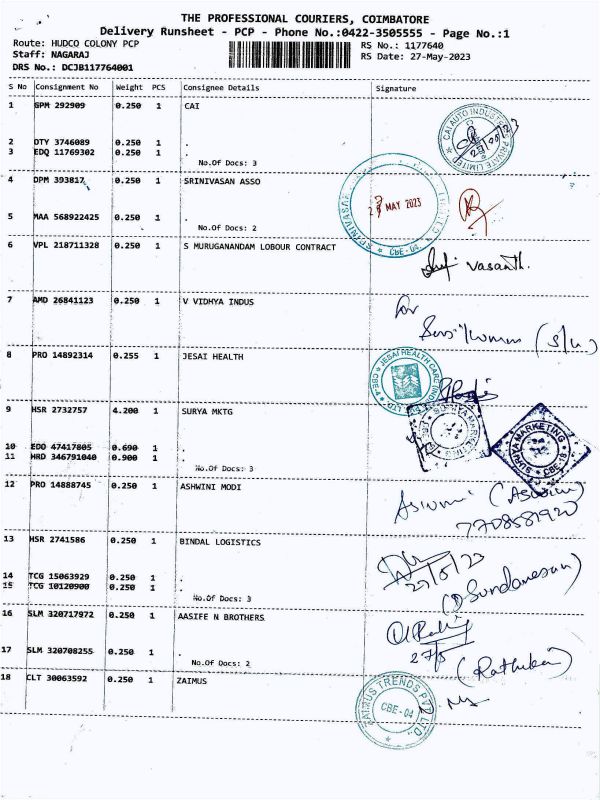 THE PROFESSIONAL COURIERS, COIMBATORE
Delivery Runsheet - PCP - Phone No.:0422-3505555 - Page No.:1
Route: HUDCO COLONY PCP RS No.: 1177640
Staff: NAGARAJ RS Date: 27-May-2023
DRS No.: DCJB117764001
S No Consignment No Weight PCS Consignee Details Signature
1 GPM 292909 0.250 1 CAI
CAI AUTO INDUSTRIES PRIVATE LIMITED
2 DTY 3746089 0.250 1 .
3 EDQ 11769302 0.250 1 .
No.Of Docs: 3
4 DPM 393817 0.250 1 SRINIVASAN ASSO
27 MAY 2023
CBE-04.
5 MAA 568922425 0.250 1 .
No.Of Docs: 2
6 VPL 218711328 0.250 1 S MURUGANANDAM LOBOUR CONTRACT
Vasanth.
7 AMD 26841123 0.250 1 V VIDHYA INDUS
for
8 PRO 14892314 0.255 1 JESAI HEALTH
JESAI HEALTH CARE
9 HSR 2732757 4.200 1 SURYA MKTG
SURYA MARKETING
CBE-18
10 EDO 47417805 0.690 1 .
11 HRD 346791040 0.900 1 .
No.Of Docs: 3
12 PRO 14888745 0.250 1 ASHWINI MODI
7708581920
13 HSR 2741586 0.250 1 BINDAL LOGISTICS
27/5/23
14 TCG 15063929 0.250 1 .
15 TCG 10120900 0.250 1 .
No.Of Docs: 3
(D Sundaresan)
16 SLM 320717972 0.250 1 AASIFE N BROTHERS
27/5
17 SLM 320708255 0.250 1 .
No.Of Docs: 2
18 CLT 30063592 0.250 1 ZAIMUS
ZAIMUS TRENDS PVT LTD.
CBE-04